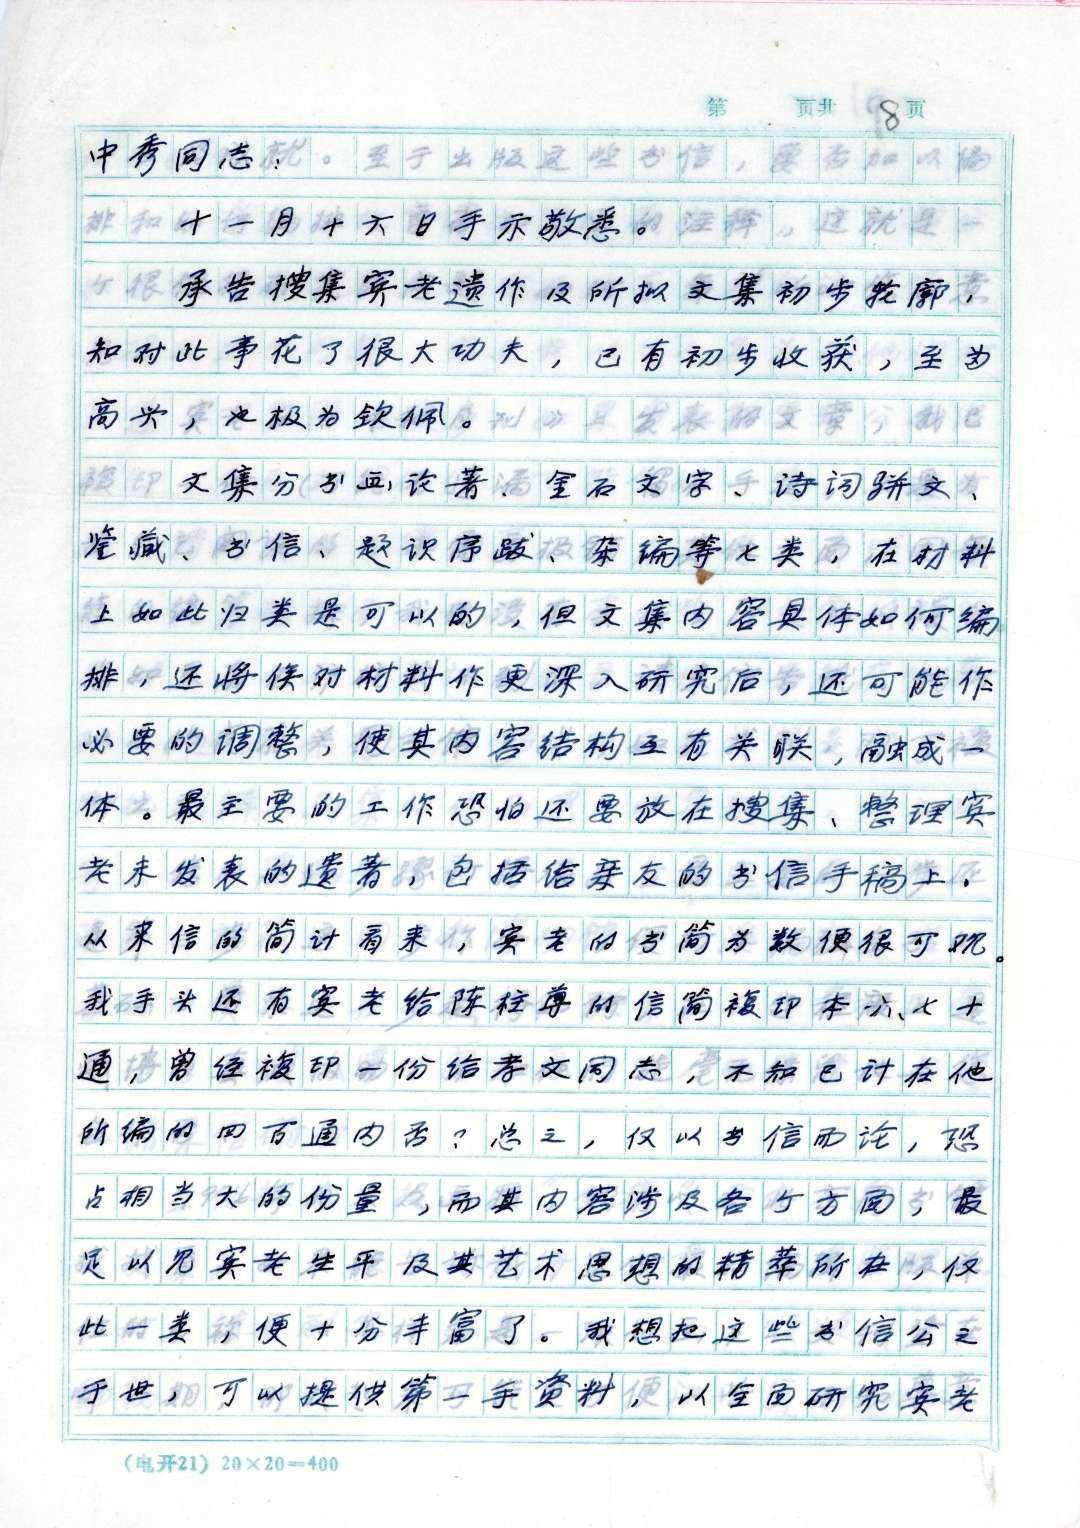 第 页共 8 页
中秀同志：
十一月十六日手示敬悉。
承告搜集宾老遗作及所拟文集初步轮廓，
知对此事花了很大功夫，已有初步收获，至为
高兴，也极为钦佩。
文集分书画论著、金石文字、诗词骈文、
鉴藏、书信、题识序跋、杂编等七类，在材料
上如此归类是可以的，但文集内容具体如何编
排，还将俟对材料作更深入研究后，还可能作
必要的调整，使其内容结构互有关联，融成一
体。最主要的工作恐怕还要放在搜集、整理宾
老未发表的遗著，包括给亲友的书信手稿上。
从来信的简计看来，宾老的书简为数便很可观。
我手头还有宾老给陈柱尊的信简複印本六、七十
通，曾经複印一份给孝文同志，不知已计在他
所编的四百通内否？总之，仅以书信而论，恐
占相当大的份量，而其内容涉及各个方面，最
足以见宾老生平及其艺术思想的精萃所在，仅
此一类，便十分丰富了。我想把这些书信公之
于世，可以提供第一手资料，以全面研究宾老
(电开21) 20×20=400